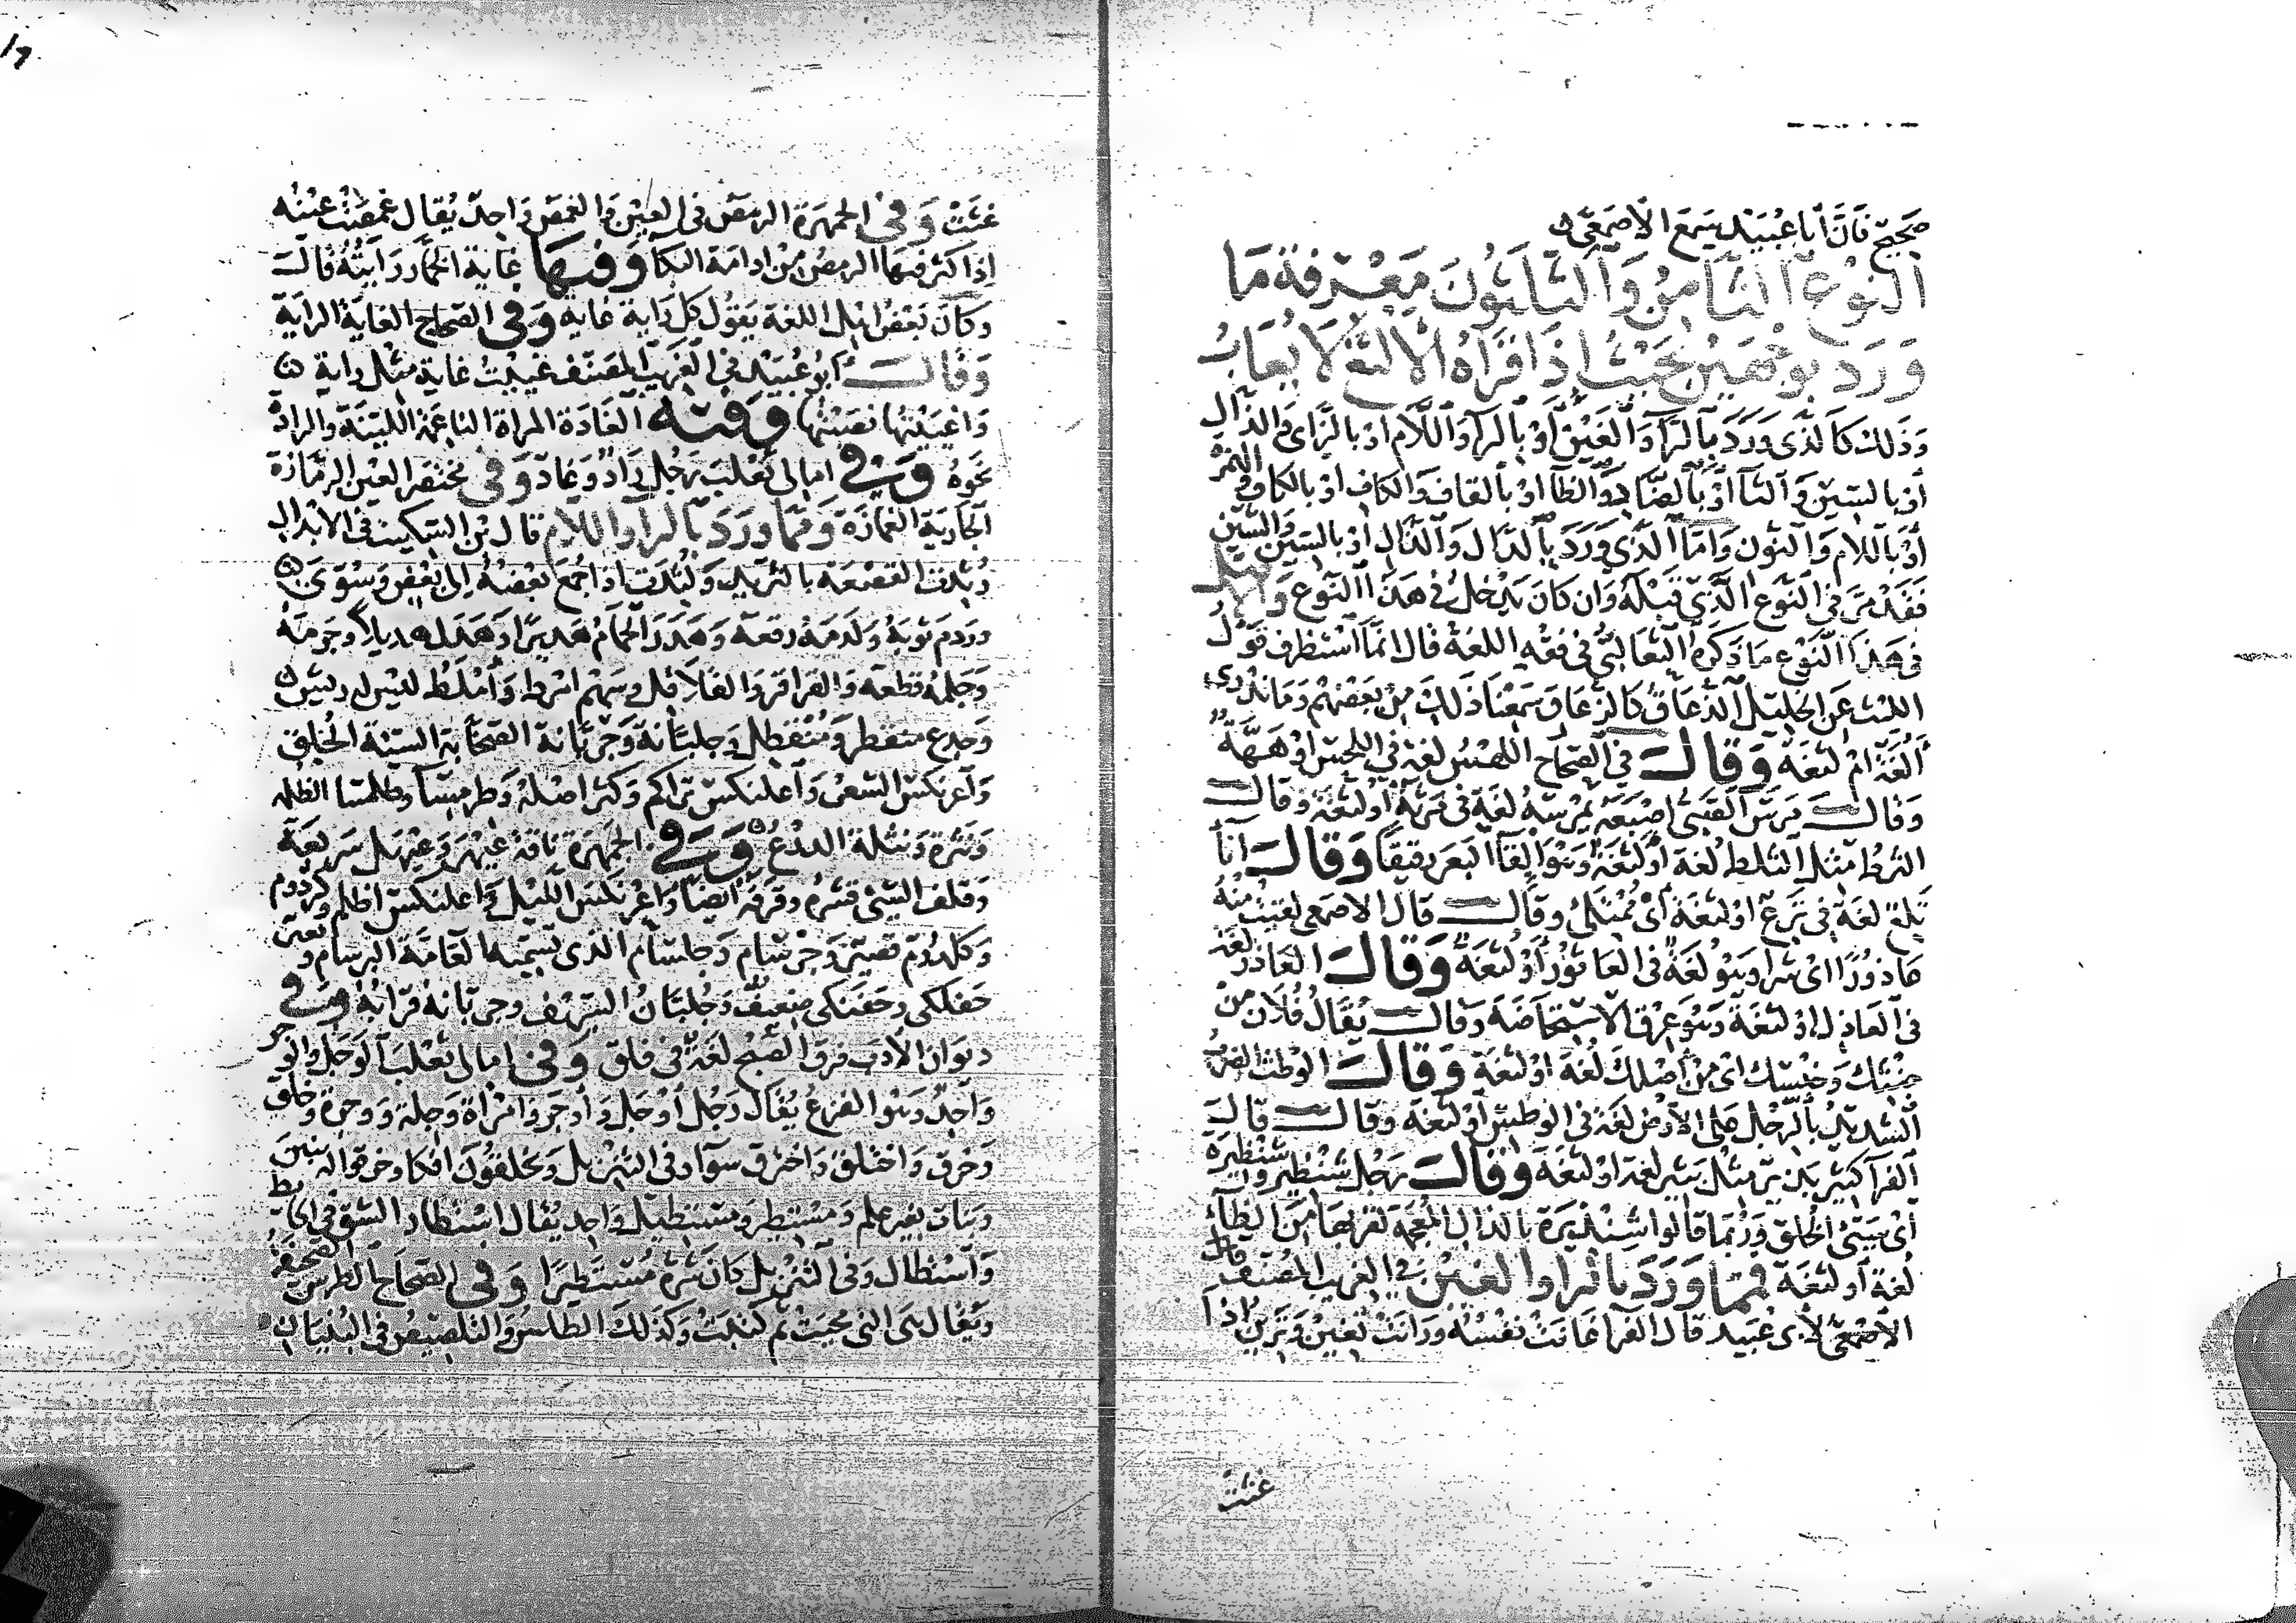 صحيح فان أبا عبيد سمع الأصمعي
النوع الثامن والثلثون معرفة ما
ورد بوجهين بحيث اذا قراه الالثغ لا يعاب
وذلك كالذي ورد بالرا والغين او بالرا واللام او بالزاى والذال
أو بالسين والثا أو بالضاد والظا او بالقاف والكاف او بالكاف والهمزة
أو باللام والنون واما الذي ورد بالدال والذال او بالسين والشين
فقد مر في النوع الذي قبله وان كان يدخل في هذا النوع والاصل
في هذا النوع ما ذكره الثعالبي في فقه اللغة قال انما استظرف قول
الليث عن الخليل الذعاق كالزعاق سمعنا ذلك من بعضهم وما ندري
ألغة ام لثغة وقال في الصحاح اللهس لغة في اللحس او ههة
وقال مرس الصبى اصبعه يمرسه لغة في مرثه أو لثغة وقال
الثرط مثل الثلط لغة او لثغة وهو القآ البعر رقيقا وقال انأ
تلع لغة في ترع او لثغة أى ممتلئ وقال قال الاصمعى لقيت منه
عاذورا اى شرا وهو لغة في العاثور أو لثغة وقال العاذر لغة
في العاذل او لثغة وهو عرق الاستحاضة وقال يقال فلان من
جنثك وجنسك اى من أصلك لغة او لثغة وقال الوطث الضرب
الشديد بالرجل على الأرض لغة في الوطس أو لثغة وقال قال
الفرا كثير بذير مثل بثير لغة او لثغة وقال رجل شنظير وشنظيرة
أى سيئ الخلق وربما قالوا شنذيرة بالذال المعجمة لقربها من الظاء
لغة أو لثغة فمما ورد بالرا والغين في الغريب المصنف قال
الأصمعي لأبى عبيد قال الفرا غانت نفسه ورانت تغين وترين اذا
غثت
غثت وفي الجمهرة الرمص في العين والغمص واحد يقال غمصت عينه
إذا كثر فيها الرمص من ادامة البكا وفيها غاية الخمار رايته قال
وكان بعض اهل اللغة يقول كل راية غاية وفي الصحاح الغاية الراية
وقال أبو عبيد في الغريب المصنف غييت غاية مثل راية
واغييتها نصبتها وفيه الغادة المراة الناعمة اللينة والرادة
نحوه وفي امالى ثعلب رجل راد وغاد وفي مختصر العين الرمازة
الجارية الغمازة ومما ورد بالرا واللام قال بن السكيت في الابدال
رثدت القصعة بالثريد ولثدت اذا جمع بعضه إلى بعض وسوى
وردم ثوبه ولدمه رقعه وهدر الحمام هديرا وهدل هديلا وجرمه
وجلمه قطعه والقراقر والقلاقل وسهم امرط وأملط ليس له ريش
وجدع متقطر ومتقطل وجلبانة وجربانة الصخابة السيئة الخلق
واعرنكس الشعر وأعلنكس تراكم وكثر اصله وطرمسا وطلمسا الظلمة
ونثرة ونثلة الدرع وفي الجمهرة ناقة عيهر وعيهل سريعة
وقلف الشئ قشره وقرفه ايضا واعرنكس الليل واعلنكس اظلم وكردوم
وكلدوم قصير وجرسام وجلسام الذى تسميه العامة البرسام و
حفلكى وحفنكى ضعيف وجلبان السيف وجربانه قرابه وفي
ديوان الأدب فرق الصبح لغة في فلق وفي امالى ثعلب الوجل والوجر
واحد وهو الفزع يقال رجل أوجل وأوجر وامراة وجلة ووجرة وخلق
وخرق واختلق واخترق سوآ وفي التنزيل وتخلقون افكا وخرقوا له بنين
وبنات بغير علم ومستطير ومستطيل واحد يقال استطار الشق في الحايط
وآستطال وفي التنزيل كان شره مستطيرا وفي الصحاح الطرس الصحيفة
ويقال هى التى محيت ثم كتبت وكذلك الطلس والتلصيص في البنيان